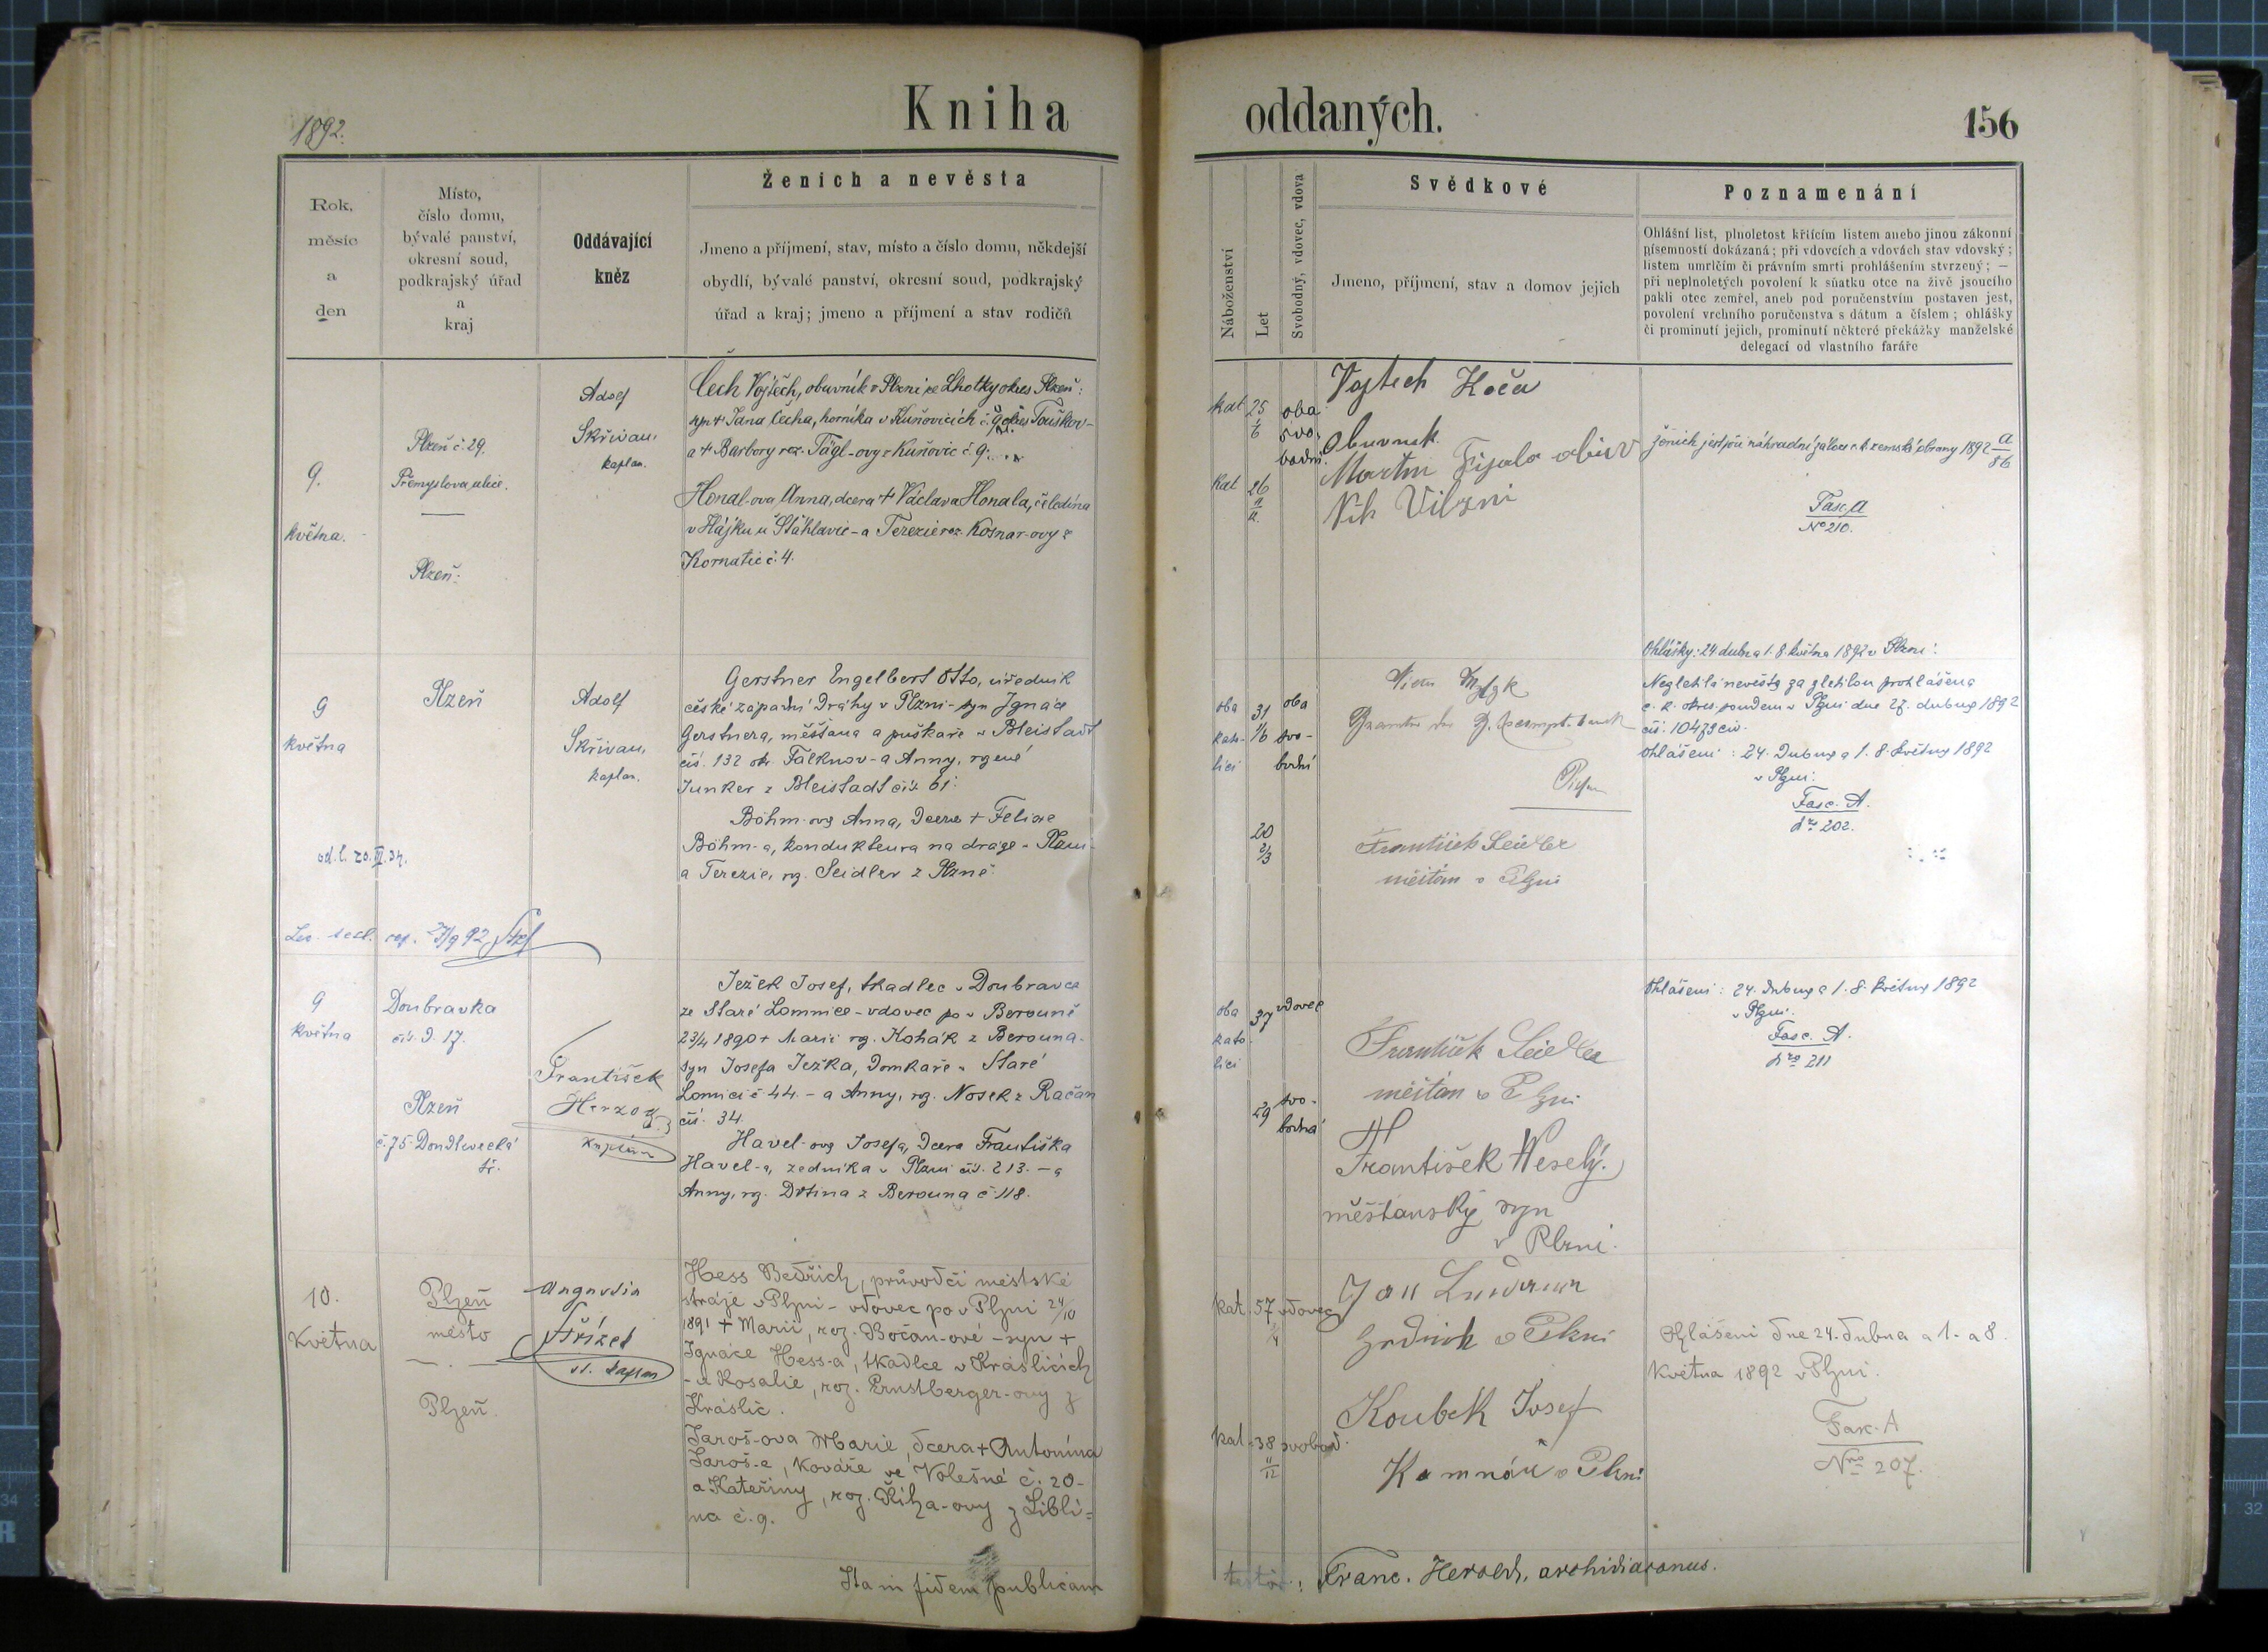 1892.
Kniha
Rok,
měsíc
a
den
Místo,
číslo domu,
bývalé panství,
okresní soud,
podkrajský úřad
a
kraj
Oddávající
kněz
Ženich a nevěsta
Jmeno a příjmení, stav, místo a číslo domu, někdejší
obydlí, bývalé panství, okresní soud, podkrajský
úřad a kraj; jmeno a příjmení a stav rodičů
9.
května.
Plzeň č. 29.
Přemyslova ulice.
Plzeň:
Adolf
Skřivan,
kaplan.
Čech Vojtěch, obuvník v Plzni ze Lhotky okres Plzeň:
syn + Jana Čecha, horníka v Kuňovicích č. 9 okres Touškov-
a + Barbory roz. Tägl-ovy z Kuňovic č. 9.
Honal-ova Anna, dcera + Václava Honala, čeledína
v Hájku u Šťáhlavic - a Terezie roz. Kosnar-ovy z
Kornatic č. 4.
9
května
od. l. 20.
Plzeň
Adolf
Skřivan,
kaplan.
Gerstner Engelbert Otto, úředník
české západní dráhy v Plzni - syn Ignáce
Gerstnera, měšťana a puškaře v Bleistadt
čís. 132 okr. Falknov - a Anny, rozené
Junker z Bleistadt čís. 61.
Böhm-ova Anna, dcera + Felixe
Böhm-a, kondukteura na dráze - Plzni -
a Terezie, roz. Seidler z Plzně.
9
května
Doubravka
čís. d. 17.
Plzeň
č. 75 Doudlevecká
tř.
František
Herzog
kaplan
Ježek Josef, tkadlec v Doubravce
ze Staré Lomnice - vdovec po v Berouně
23/4 1890 + Marii roz. Kohák z Berouna -
syn Josefa Ježka, domkaře v Staré
Lomnici č 44. - a Anny, roz. Nosek z Račan
čís. 34.
Havel-ova Josefa, dcera Františka
Havel-a, zedníka v Plzni čís. 213. - a
Anny, roz. Drtina z Berouna č. 118.
10.
května
Plzeň
město
Plzeň.
Augustin
Střížek
st. kaplan
Hess Bedřich, průvodčí městské
stráže v Plzni - vdovec po v Plzni 24/10
1891 + Marii, roz. Bočan-ové - syn +
Ignáce Hess-a, tkadlce v Kraslicích
- a Rosalie, roz. Ernstberger-ovy z
Kraslic.
Jaroš-ova Marie, dcera + Antonína
Jaroš-e, kováře ve Volešné č. 20 -
a Kateřiny, roz. Říha-ovy z Liblí-
na č. 9.
Ita in fidem publicam
oddaných.
156
Náboženství
Let
Svobodný, vdovec, vdova
Svědkové
Jmeno, příjmení, stav a domov jejich
Poznamenání
Ohlášní list, plnoletost křticím listem anebo jinou zákonní
písemností dokázaná; při vdovcích a vdovách stav vdovský;
listem umrlčím či právním smrti prohlášením stvrzený; —
při neplnoletých povolení k sňatku otce na živě jsoucího
pakli otec zemřel, aneb pod poručenstvím postaven jest,
povolení vrchního poručenstva s dátum a číslem; ohlášky
či prominutí jejich, prominutí některé překážky manželské
delegací od vlastního faráře
kat 25
6
oba
svo-
bodni
kat 26
Vojtech Koča
Obuvnik.
Martin Fijala
ženich jest při náhradní záloze c. k. zemské obrany 1892 a/86
Fasc. A
No 210.
Ohlášky: 24 dubna 1. 8. května 1892 v Plzni:
oba
kato-
lici
31
1/6
oba
svo-
bodni
20
2/3
František Seidler
měštan v Plzni
Nezletilá nevěsta za zletilou prohlášena
c. k. okres. soudem v Plzni dne 27. dubna 1892
čís: 10473 civ.
Ohlášeni: 24. dubna a 1. 8. května 1892
v Plzni:
Fasc. A.
Nro 202.
oba
kato-
lici
37
vdovec
29
svo-
bodná
František Seidler
měštan v Plzni
František Weselý.
měšťanský syn
v Plzni.
Ohlášeni: 24. dubna a 1. 8. května 1892
v Plzni.
Fasc. A.
Nro 211
kat. 57 vdovec
4
Jan
v Plzni
kat. 38 svobod.
11/12
Koubek Josef
Kamnář v Plzni
Ohlášeni dne 24. dubna a 1. a 8.
května 1892 v Plzni.
Fasc. A
Nro 207.
Franc. Herold, archidiaconus.